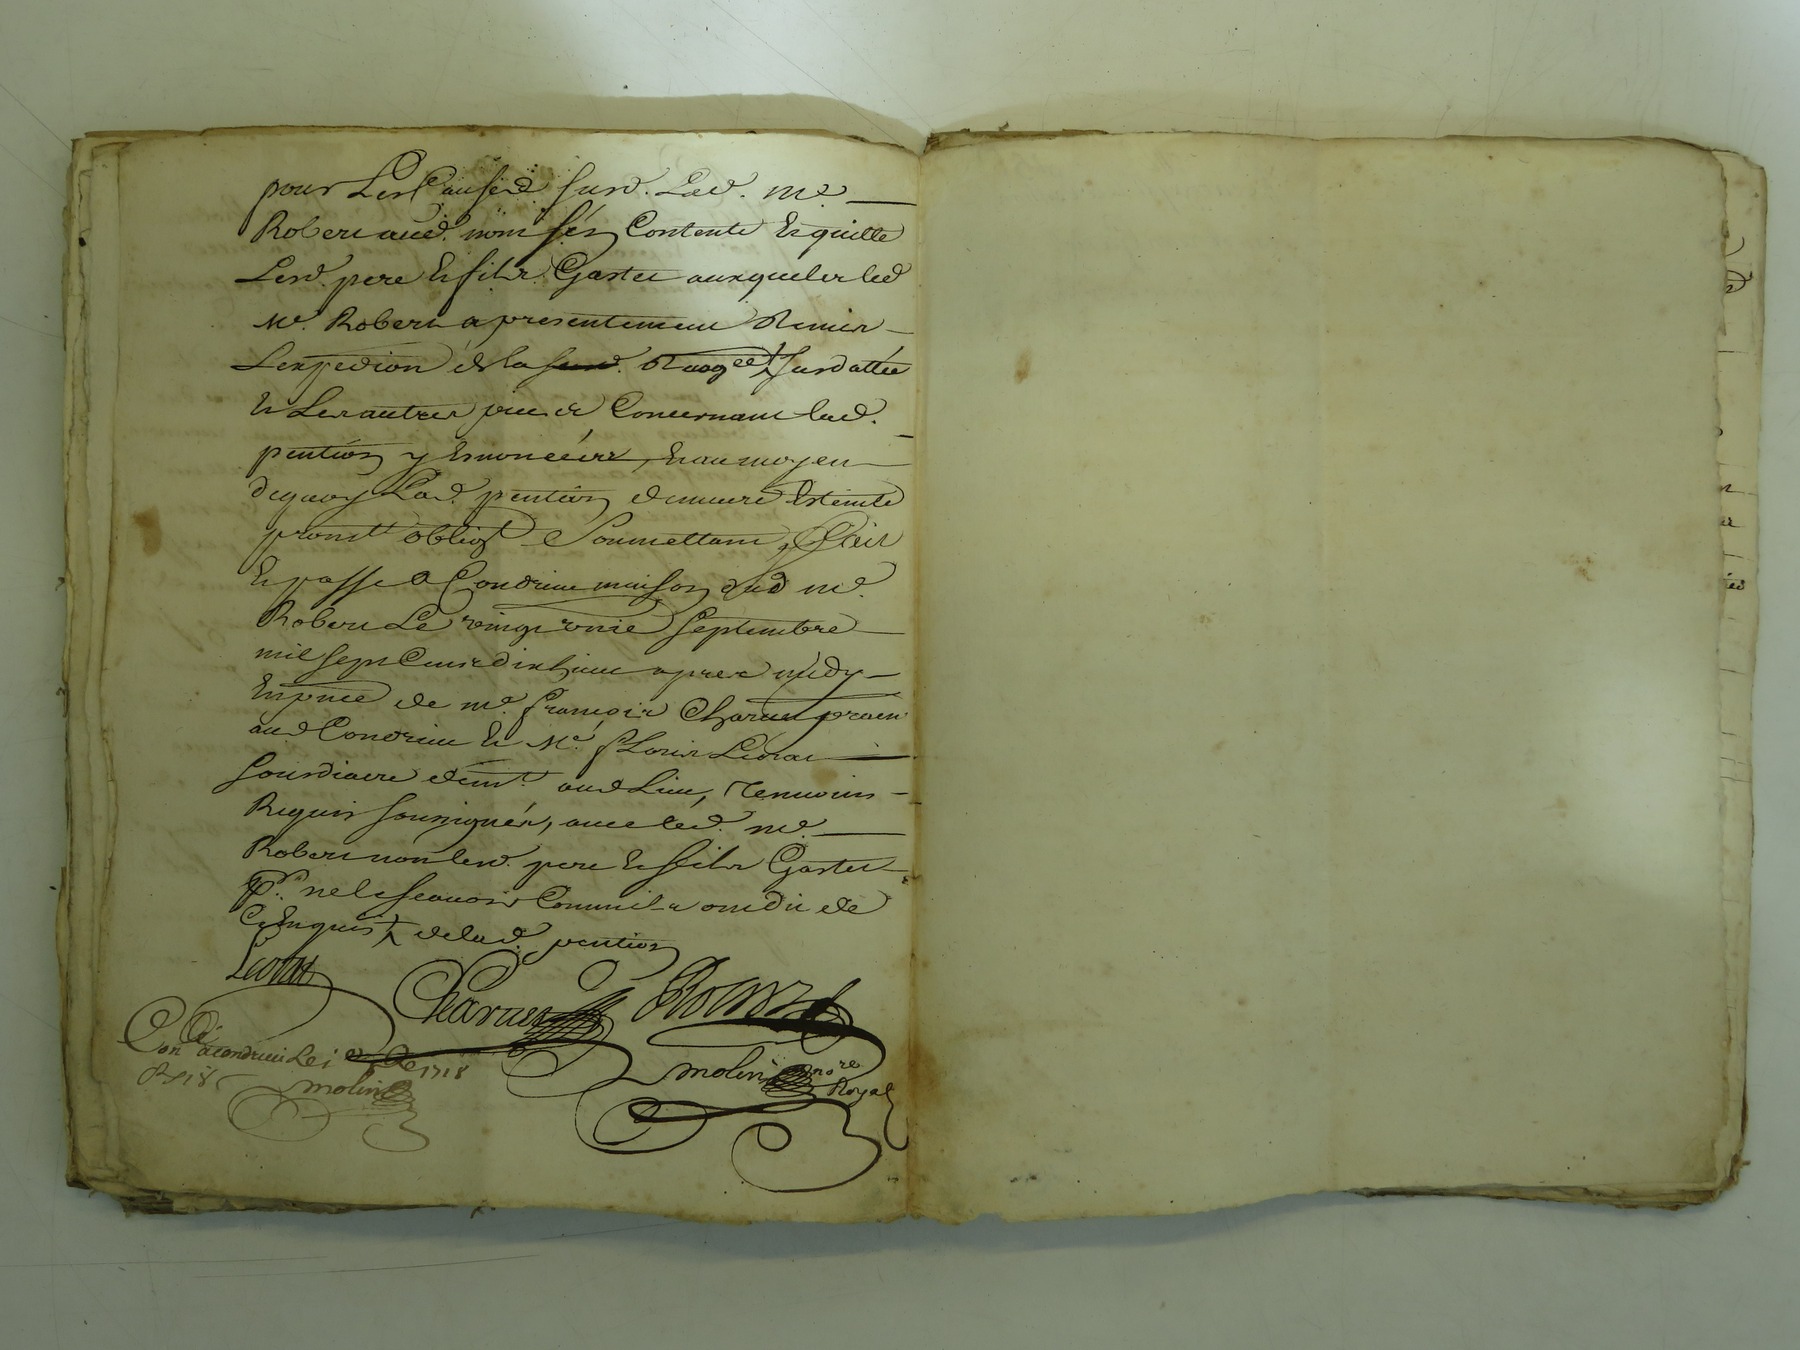 pour Les Causes susd. Led. me.
Robert aud. nom s'en Contente Et quitte
Lesd. pere Et fils Gastet auxquels led
Me. Robert a presentement Remis
Lexpedion de la susd. susdattée
Et Les autres pieces Concernant lad.
pention y Enoncéées, Et au moyen
dequoy Lad. pention demeure Esteinte
promt. obligt. Soumettant, fait
Et passé a Condrieu maison dud me.
Robert Le vingt onie septembre
mil sept Cents dix huit apres midy
En pnce de me. françois Charvet praen
aud Condrieu Et Me. Louis Levrat
demt. aud Lieu, Temoins
Requis soussignés, avec led. me.
Robert non lesd. pere Et fils Gastet
Pr. ne le scavoir Comme ils ont dit de
Ce Enquis de lad. pention
Levrat
Charvet Robert
Con. a condrieu Le 1718
molin nore
Royal
molin